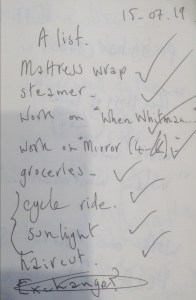 15-07-19
A list.
Mattress wrap
steamer.
work on "When Whitman...
work on "Mirror (4-
groceries.
cycle ride.
sunlight
haircut.
Exchanges?